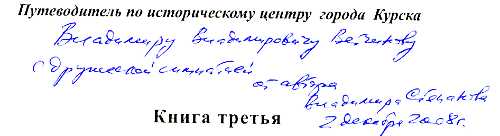 Путеводитель по историческому центру города Курска
Владимиру Владимировичу
с дружеской симпатией
от автора
Владимира Степанова
2 декабря 2008г.
Книга третья